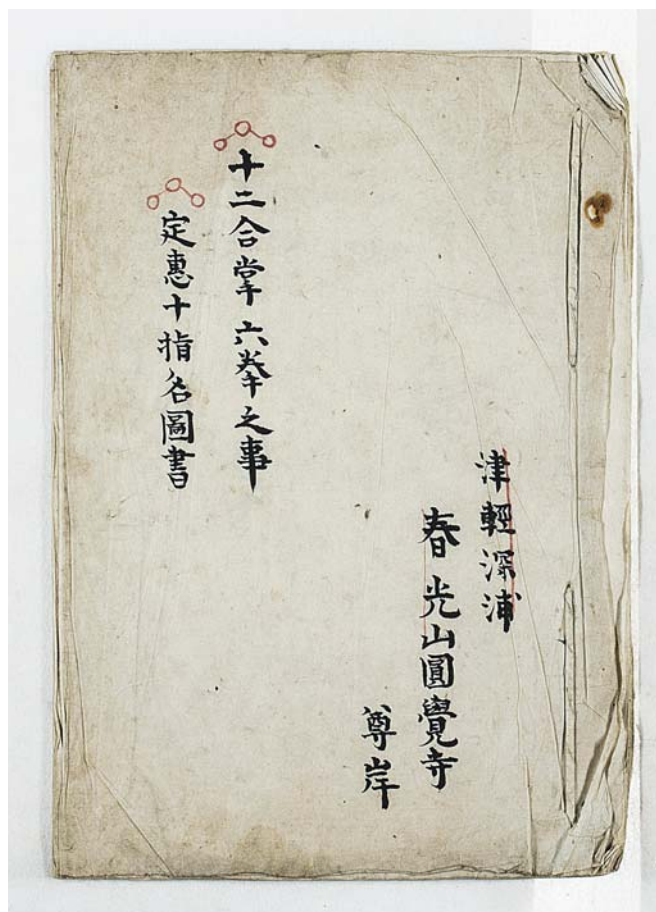 津輕深浦
春光山圓覺寺
尊岸
十二合掌六拳之事
定惠十指名圖書